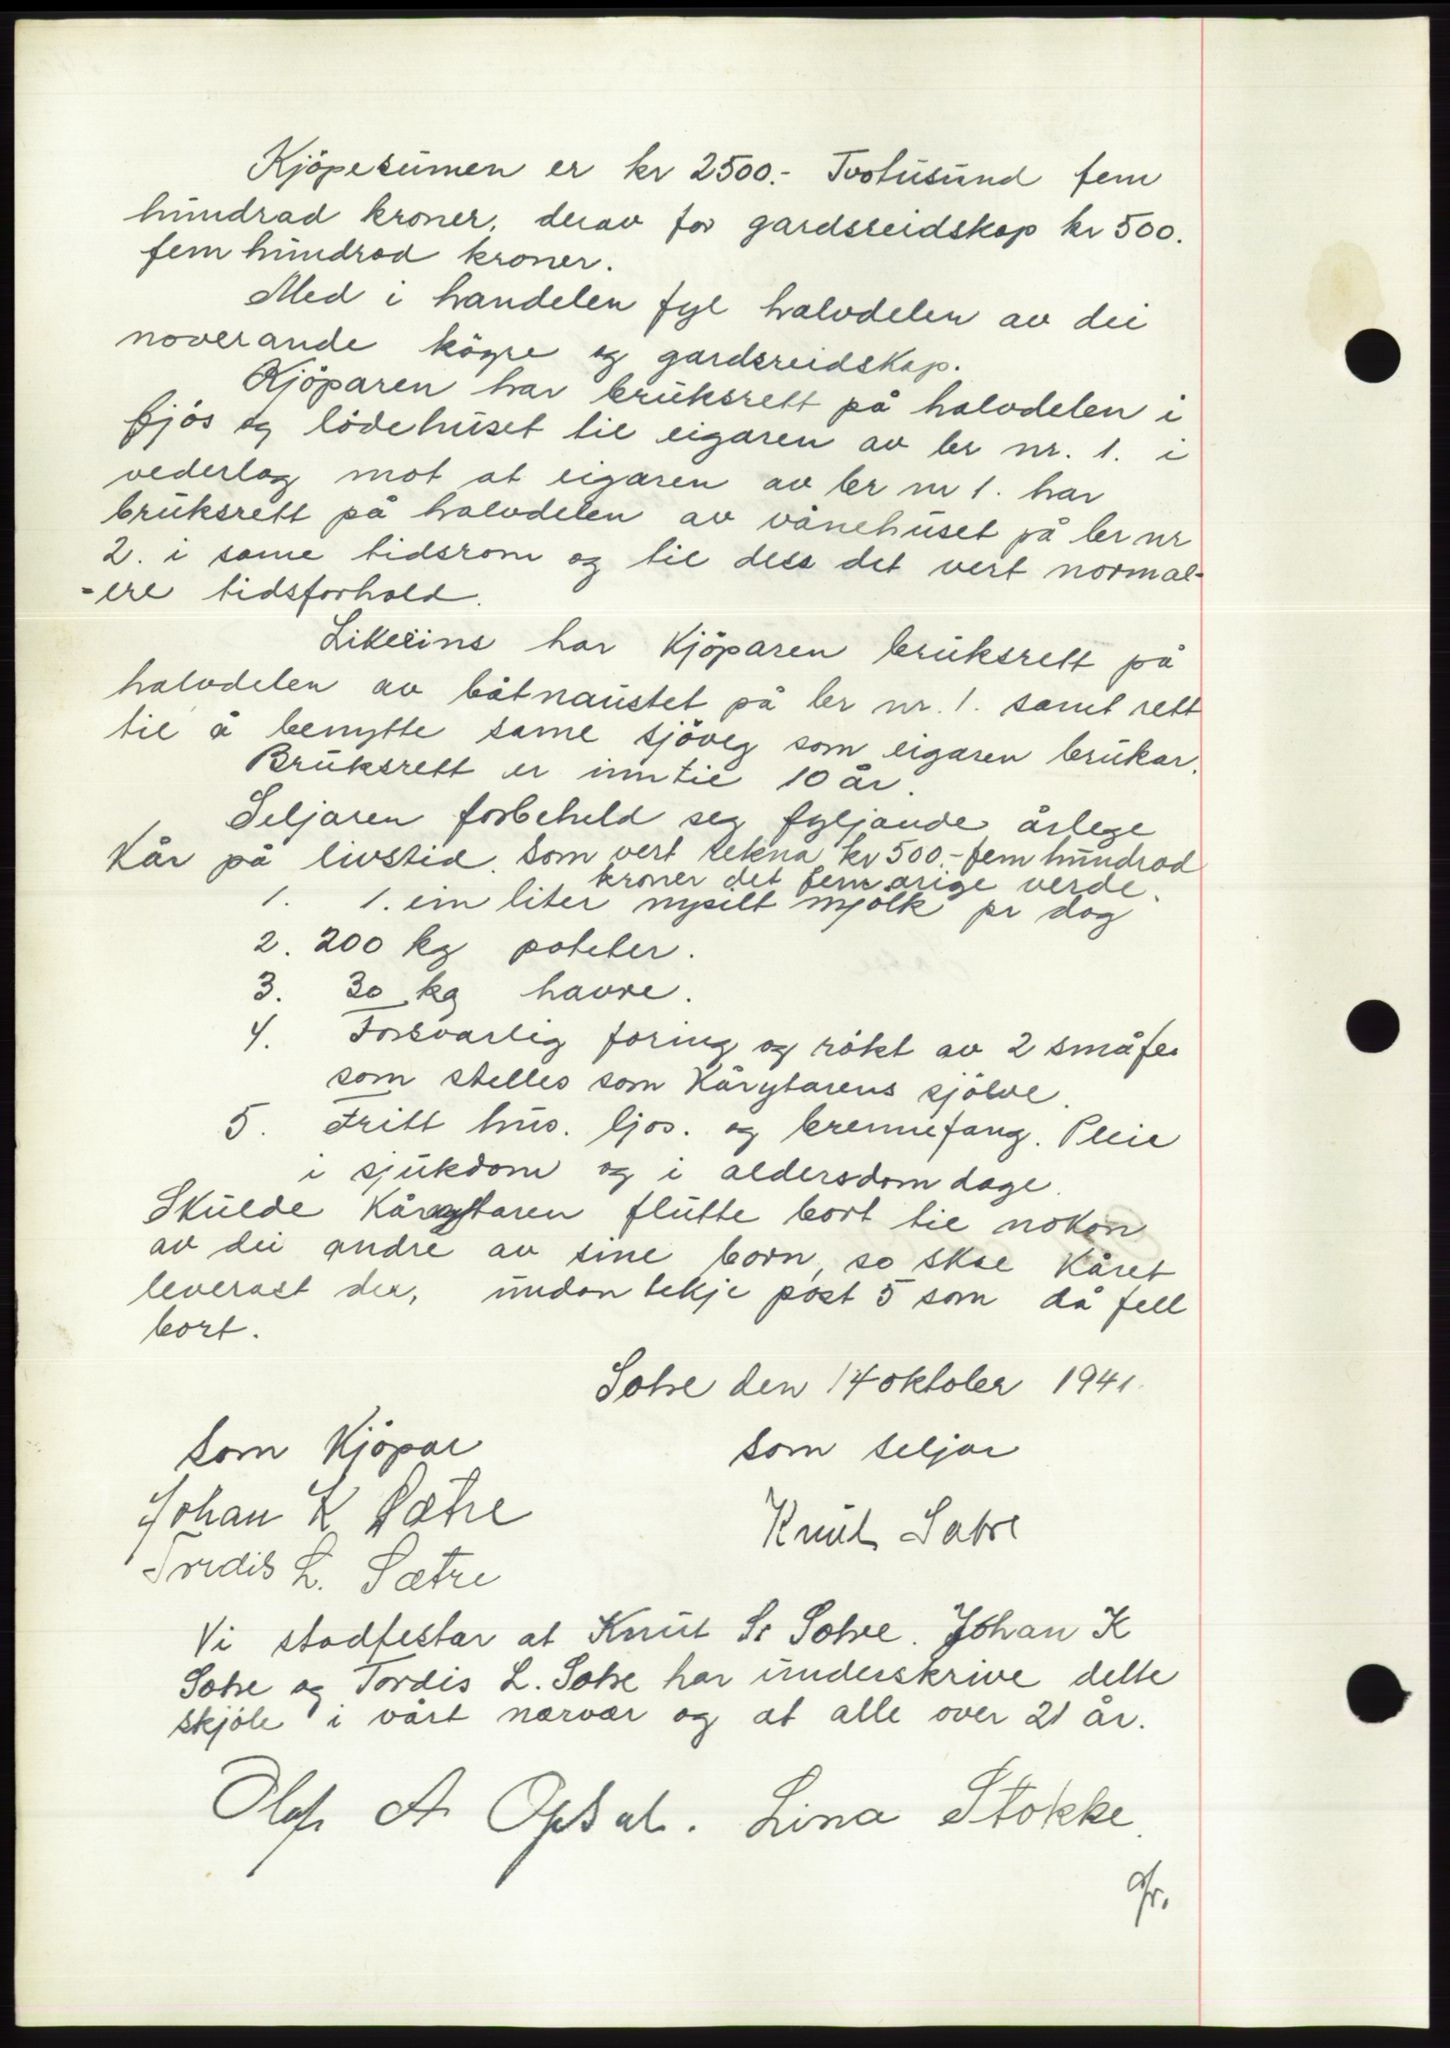 Kjöpesumen er kr 2500.- Tvotusund fem
hundrad kroner, derav for gardsreidskap kr 500.
fem hundrad kroner.
Med i handelen fyl halvdelen av dei
noverande kögre og gardsreidskap.
Kjöparen har bruksrett på halvdelen i
fjös og lödehuset til eigaren av br nr. 1. i
vederlag mot at eigaren av br nr 1. har
bruksrett på halvdelen av vånehuset på br nr
2. i same tidsrom og til dess det vert normal-
-ere tidsforhold.
Likeeins har Kjöparen bruksrett på
halvdelen av båtnaustet på br nr. 1. samt rett
til å benytte same sjöveg som eigaren brukar.
Bruksrett er inntil 10 år.
Seljaren forbeheld seg fyljande årlege
Kår på livstid. som vert rekna kr 500.- fem hundrad
kroner det femårige verde.
1. 1. ein liter nysilt mjölk pr dag
2. 200 kg poteter.
3. 30 kg havre.
4. Forsvarlig foring og rökt av 2 småfe
som stelles som Kårytarens sjölve.
5. Fritt hus. ljos. og brennefang. Pleie
i sjukdom og i aldersdom dage.
Skulde Kårytaren flutte bort til nokon
av dei andre av sine born, so skae Kåret
leverast der, undantekje post 5 som då fell
bort.
Sætre den 14 oktober 1941.
Som Kjöpar som seljar
Johan K Sætre Knut Sætre
Tordis L. Sætre
Vi stadfestar at Knut S. Sætre. Johan K
Sætre og Tordis L. Sætre har underskrive dette
skjöte i vårt nærvær og at alle over 21 år.
Olaf A Opsal. Lina Stokke.